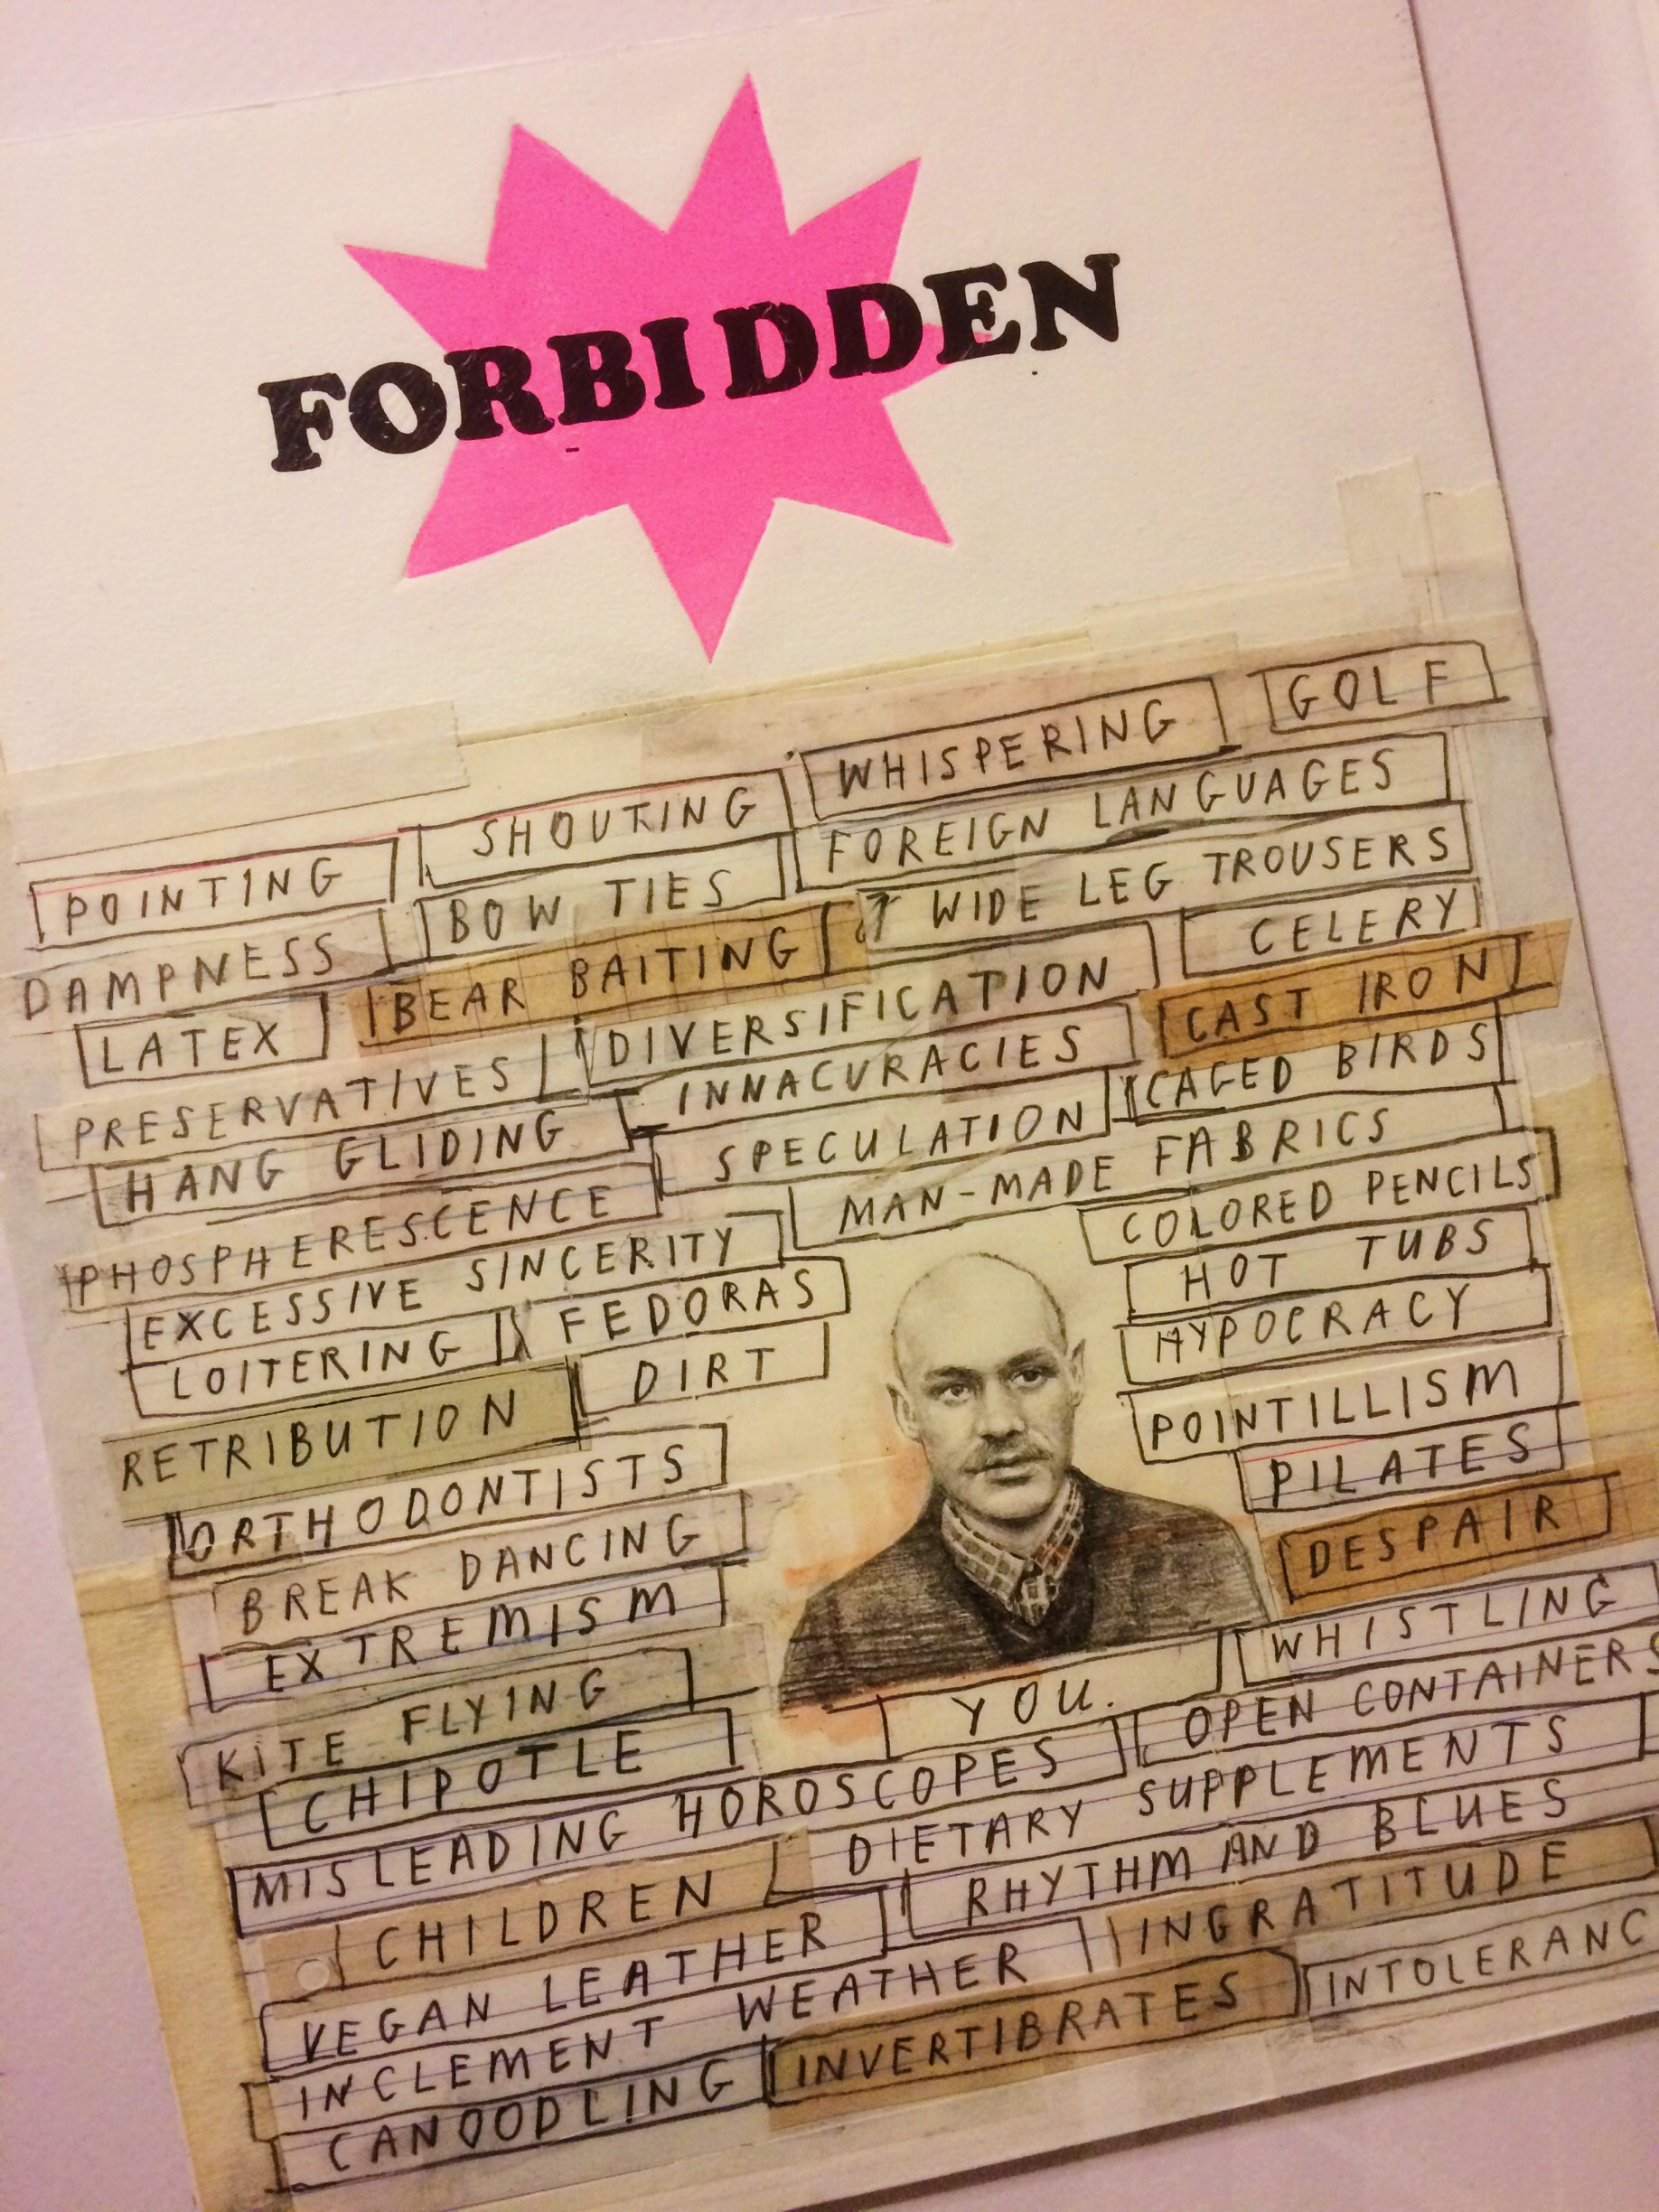 FORBIDDEN
WHISPERING GOLF
POINTING SHOUTING FOREIGN LANGUAGES
DAMPNESS BOW TIES WIDE LEG TROUSERS
LATEX BEAR BAITING DIVERSIFICATION CELERY
PRESERVATIVES INNACURACIES CAST IRON
HANG GLIDING SPECULATION CAGED BIRDS
PHOSPHERESCENCE MAN-MADE FABRICS
EXCESSIVE SINCERITY COLORED PENCILS
LOITERING FEDORAS HOT TUBS
RETRIBUTION DIRT HYPOCRACY
ORTHODONTISTS POINTILLISM
BREAK DANCING PILATES
EXTREMISM DESPAIR
KITE FLYING YOU. WHISTLING
CHIPOTLE OPEN CONTAINERS
MISLEADING HOROSCOPES DIETARY SUPPLEMENTS
CHILDREN RHYTHM AND BLUES
VEGAN LEATHER INGRATITUDE
INCLEMENT WEATHER INTOLERANC
CANOODLING INVERTIBRATES